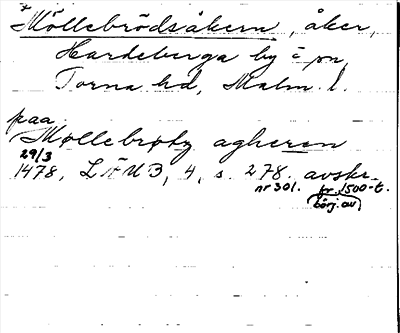 *Möllebrödsåkern, åker,
Hardeberga by i sn,
Torna hd, Malm. l.
paa
Møllebrøtz agheren
29/3
1478, LÄUB, 4, s. 278. avskr.
nr 301. fr. 1500-t.
börj. av